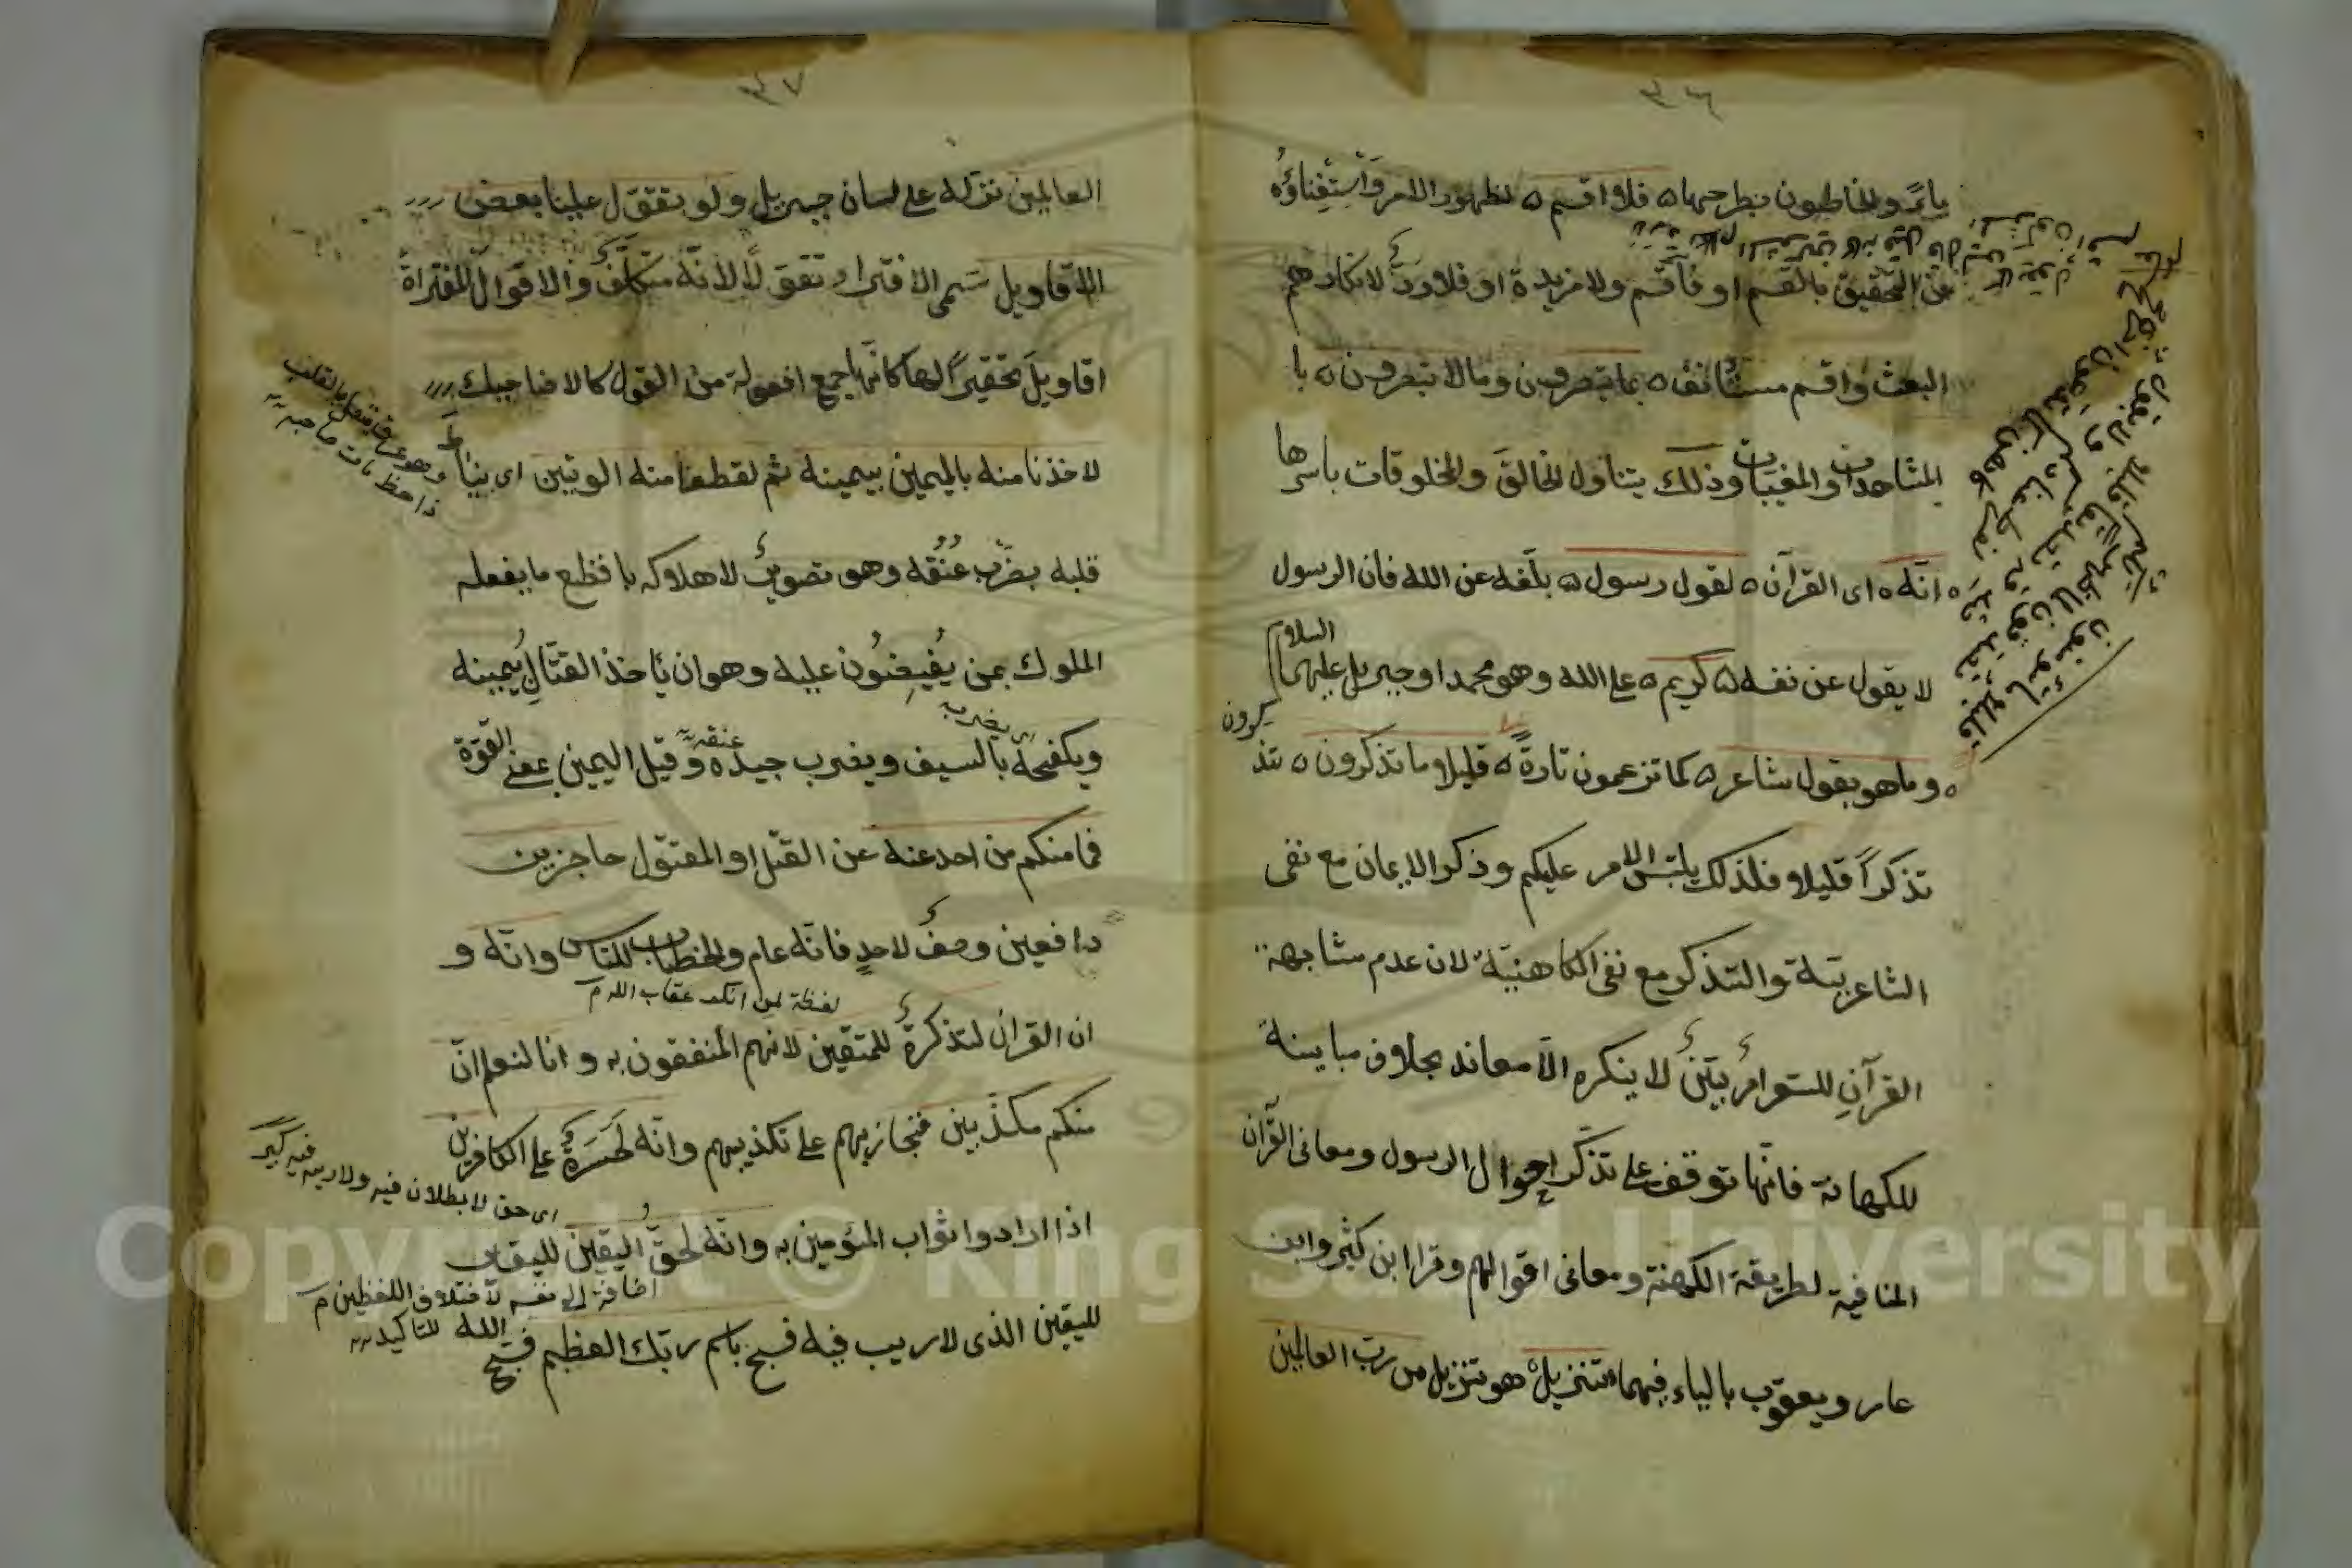 ٣٦
ياءً والخاطون بطرحها فلا اقسم لظهور الامر واستغناؤه
عن التحقيق بالقسم او فاقسم ولا مزيدة او فلا ردّ لانكارهم
البعث واقسم مستأنف بما تبصرون وما لا تبصرون با
لمشاهدات والمغيبات وذلك يتناول الخالق والمخلوقات باسرها
انّه اى القرآن لقول رسول بلّغه عن الله فان الرسول
لا يقول عن نفسه كريم على الله وهو محمد او جبريل عليهما السلام
وما هو بقول شاعر كما تزعمون تارةً قليلا ما تذكرون تتذكرون
تذكراً قليلا فلذلك يلتبس الامر عليكم وذكر الايمان مع نفى
الشاعرية والتذكر مع نفى الكاهنية لان عدم مشابهة
القرآن للشعر امر بيّن لا ينكره الّا معاند بخلاف مباينة
للكهانة فانّها توقف على تذكّر احوال الرسول ومعانى القرآن
المنافية لطريقة الكهنة ومعانى اقوالهم وقرا ابن كثير وابن
عامر ويعقوب بالياء فيهما تنزيل هو تنزيل من ربّ العالمين
٣٧
العالمين نزّله على لسان جبريل ولو تقوّل علينا بعض
الاقاويل سمى الافتراء تقوّلًا لانّه متكلّف والاقوال المفتراة
اقاويلَ تحقيراً لها كانّها جمع افعولة من القول كالاضاحيك
لاخذنا منه باليمين بيمينه ثم لقطعنا منه الوتين اى نياط
وهو عرق متصل بالقلب
اذا قطع مات صاحبه
قلبه بضرب عُنُقه وهو تصوير لاهلاكه بافظع ما يفعله
الملوك بمن يغضبون عليه وهو ان يأخذ القتّال بيمينه
اى يضربه
ويكفحه بالسيف ويضرب جيده وقيل اليمين بمعنى القوّة
عنقه
فما منكم من احد عنه عن القتل او المقتول حاجزين
دافعين وصف لاحدٍ فانّه عام والخطاب للناس وانّه و
ان القران لتذكرة للمتّقين لانهم المنتفعون به وانا لنعلم انّ
منكم مكذّبين فنجازيهم على تكذيبهم وانّه لحَسرَة على الكافرين
اى حق لا بطلان فيه ولا ريب فيه
اذا ارادوا ثواب المؤمنين به وانّه لحقّ اليقين لليقين
اضافة الى نفسه لاختلاف اللفظين م
لليقين الذى لا ريب فيه فسبح باسم ربّك العظيم فسبّح الله
للتاكيد
Copyright © King Saud University